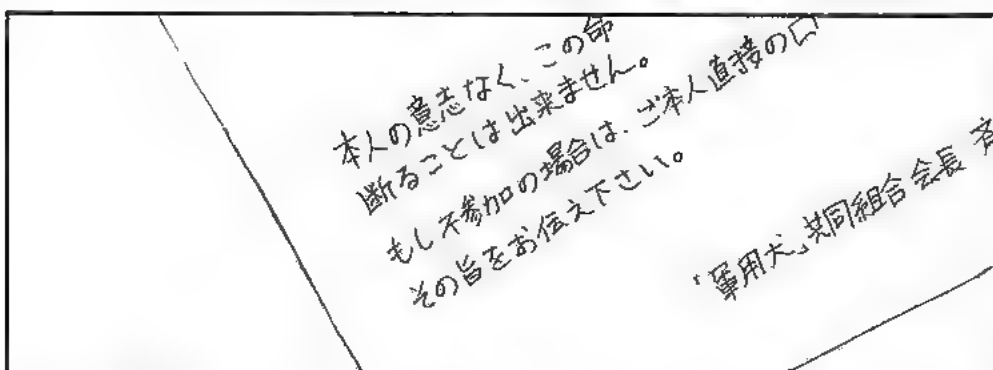 本人の意志なく、この命
断ることは出来ません。
もし不参加の場合は、ご本人直接の口
その旨をお伝え下さい。
「軍用犬」共同組合会長 斉